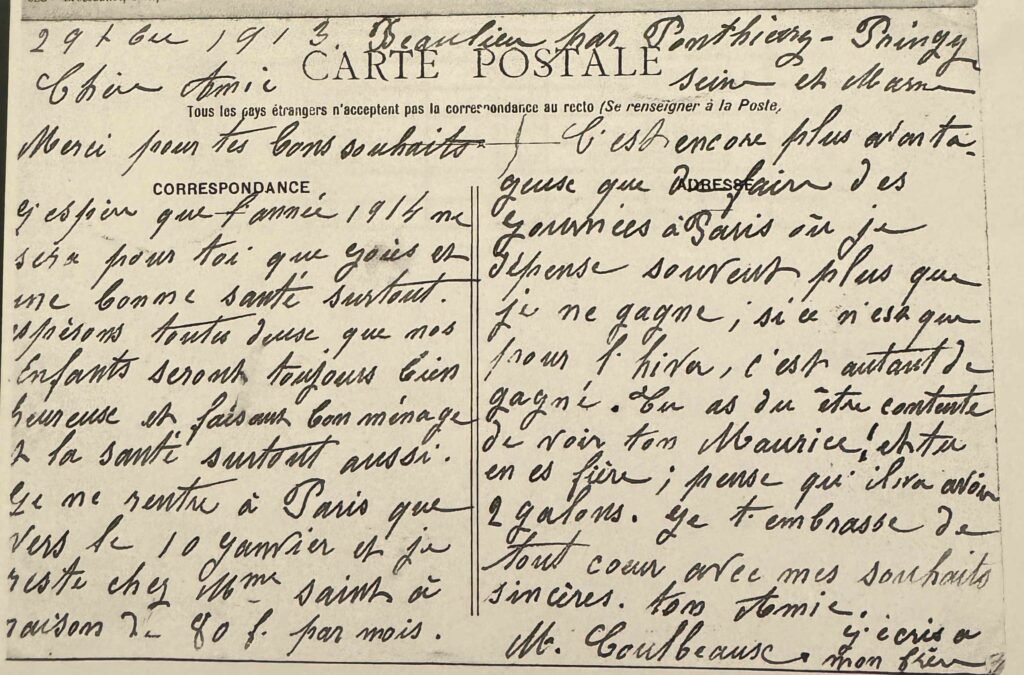 29 Xbre 1913. Beaulieu par Ponthierry - Pringy
Seine et Marne
CARTE POSTALE
Chère Amie
Tous les pays étrangers n'acceptent pas la correspondance au recto (Se renseigner à la Poste)
Merci pour tes bons souhaits
CORRESPONDANCE
j'espère que l'année 1914 ne
sera pour toi que joies et
une bonne santé surtout.
espérons toutes deuse que nos
Enfants seront toujours bien
heureuse et faisant bon ménage
et la santé surtout aussi.
Je ne rentre à Paris que
vers le 10 Janvier et je
reste chez Mme Saint à
raison de 80 f. par mois.
C'est encore plus avanta-
ADRESSE
geuse que de faire des
journées à Paris où je
dépense souvent plus que
je ne gagne ; si ce n'est que
pour l'hiver, c'est autant de
gagné. Tu as du être contente
de voir ton Maurice ! et tu
en es fière ; pense qu'il va avoir
2 galons. Je t'embrasse de
tout coeur avec mes souhaits
sincères. ton Amie.
M. Coulbeaux
j'écris à
mon frère